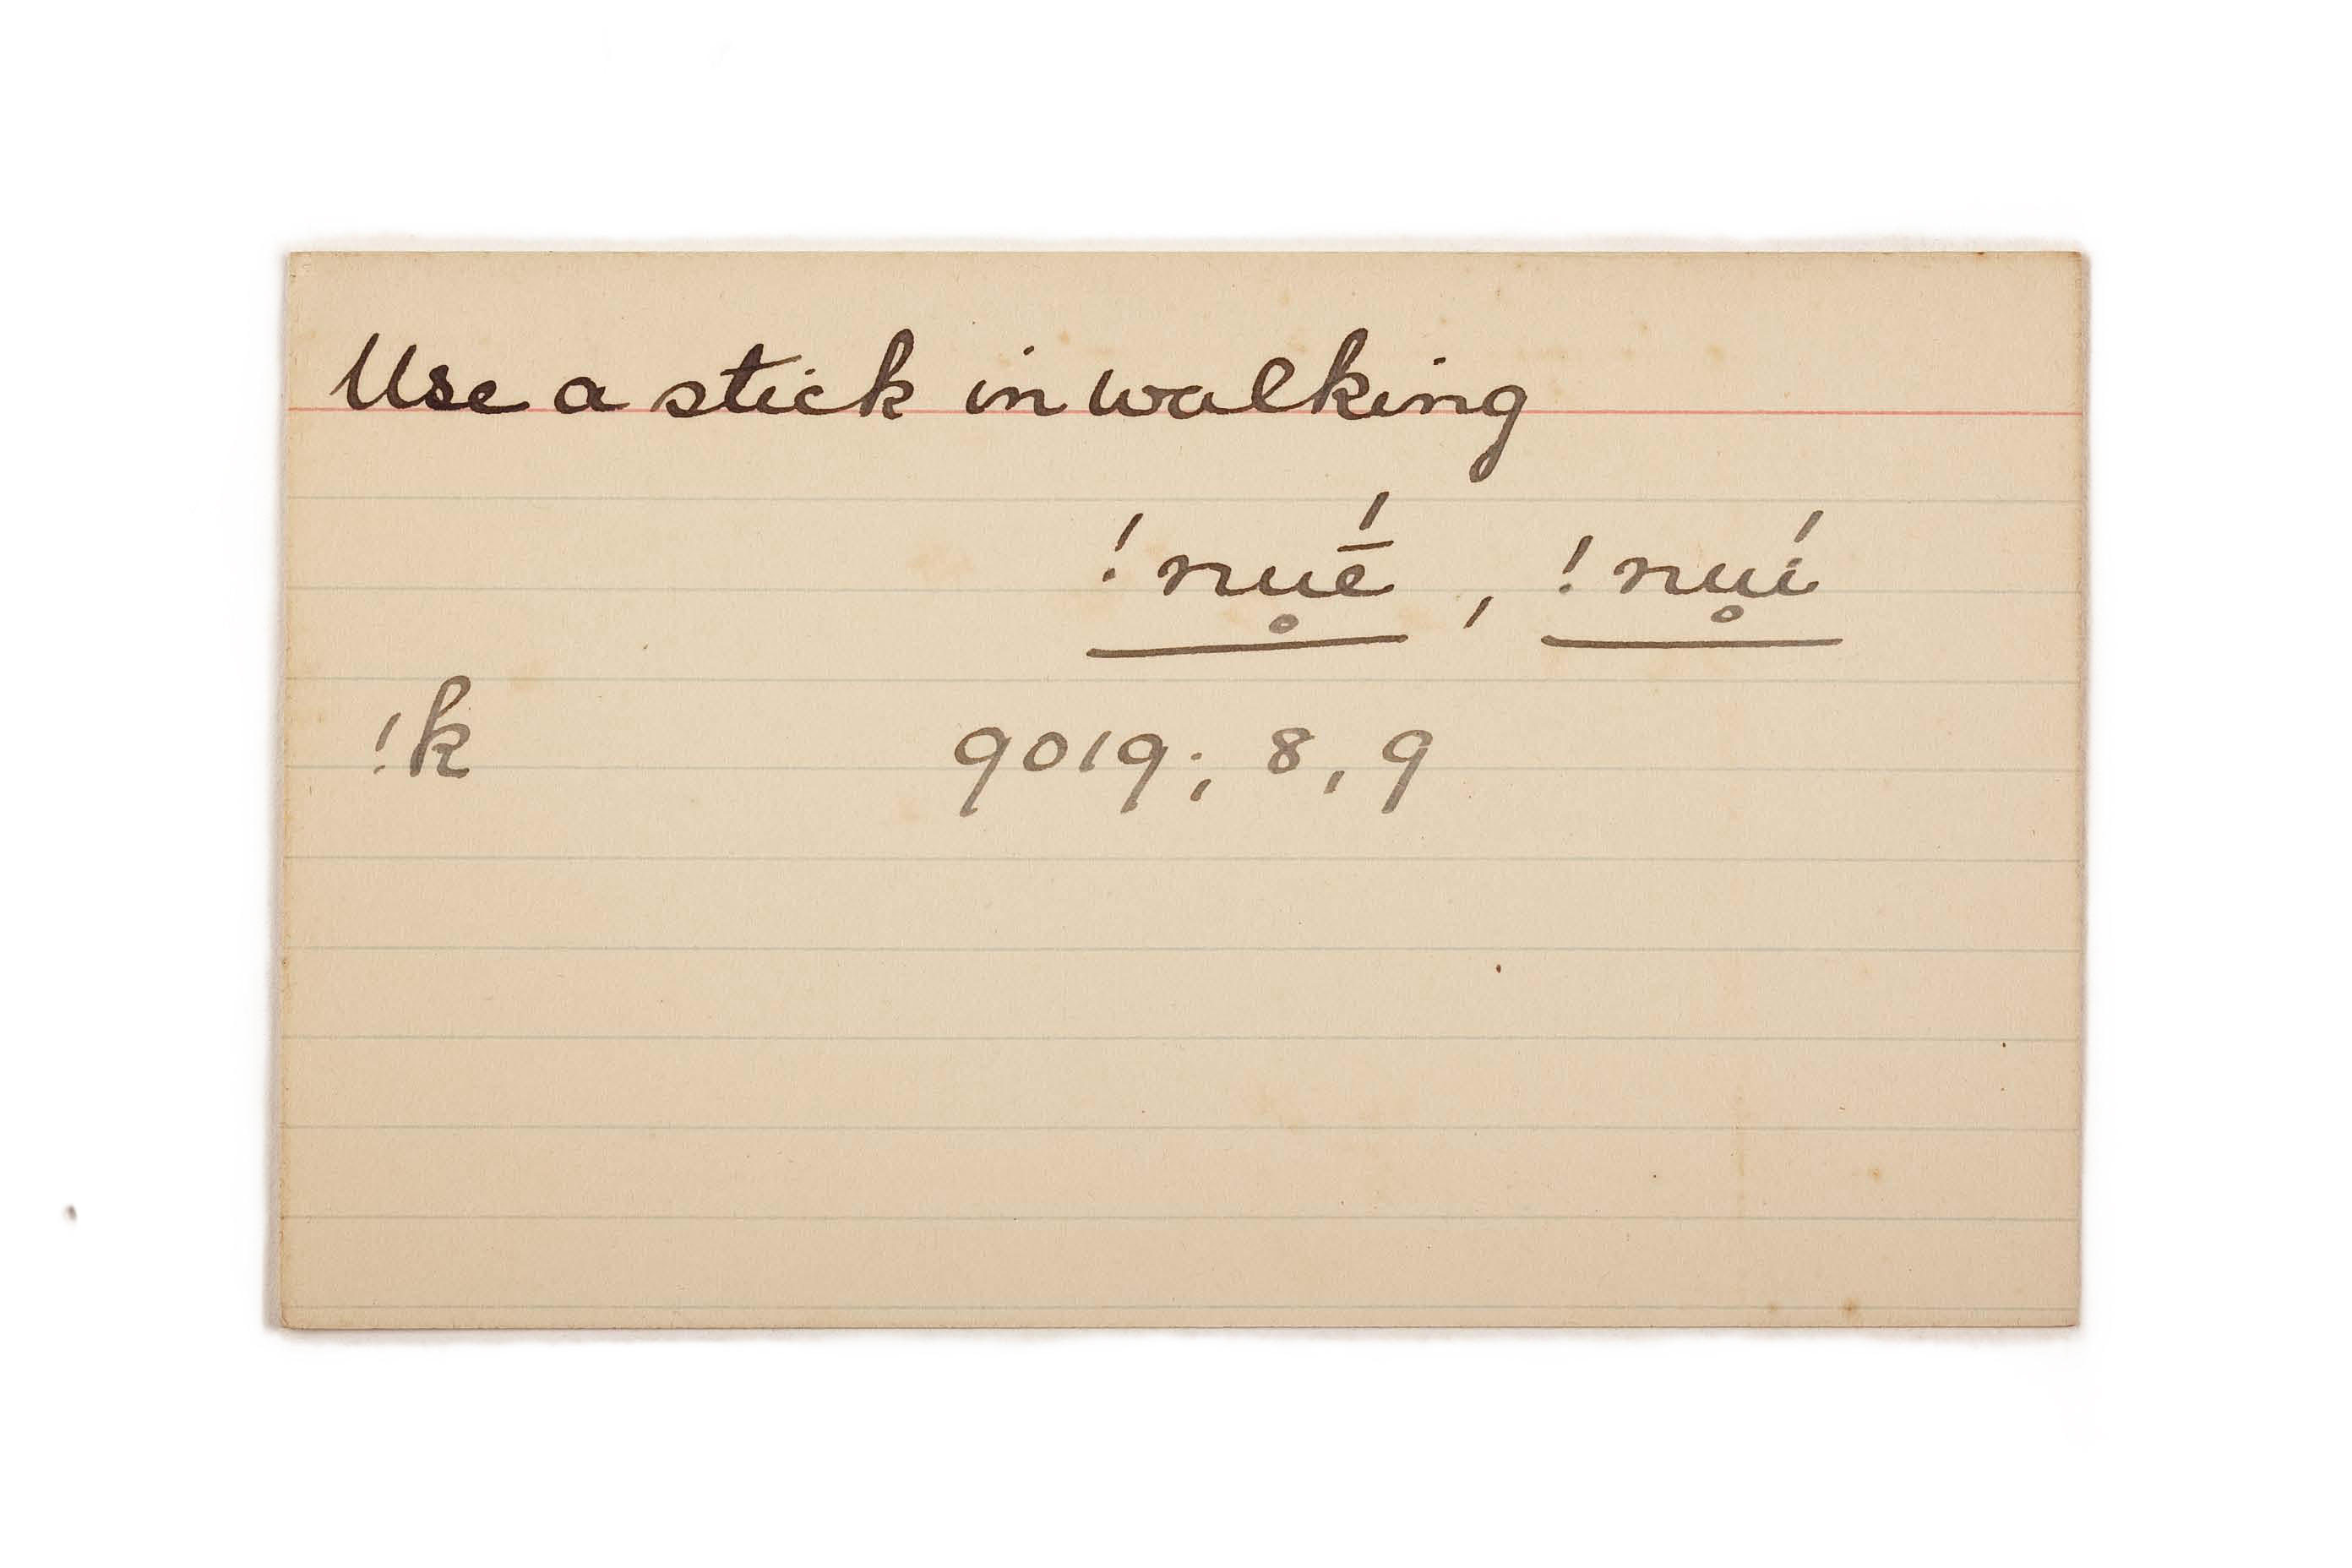 Use a stick in walking
!nu̥ḗ, !nu̥í
!k 9019; 8, 9